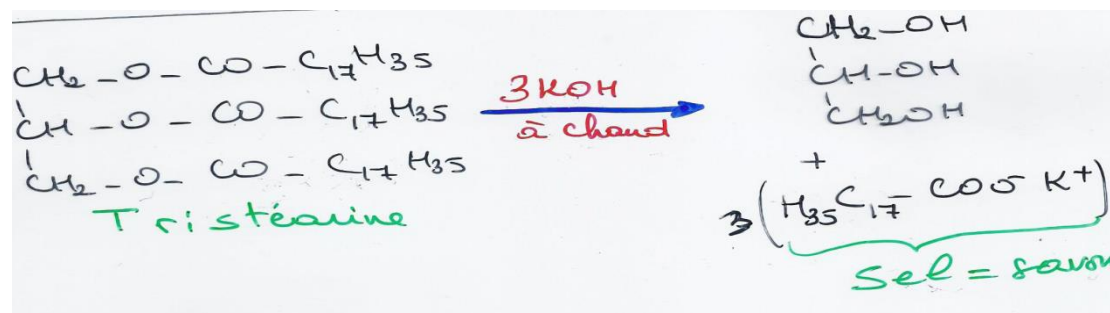 CH2-O-CO-C17H35
CH-O-CO-C17H35
CH2-O-CO-C17H35
Tristéarine
3KOH
à chaud
CH2-OH
CH-OH
CH2OH
+
3(H35C17-COO- K+)
Sel = savon